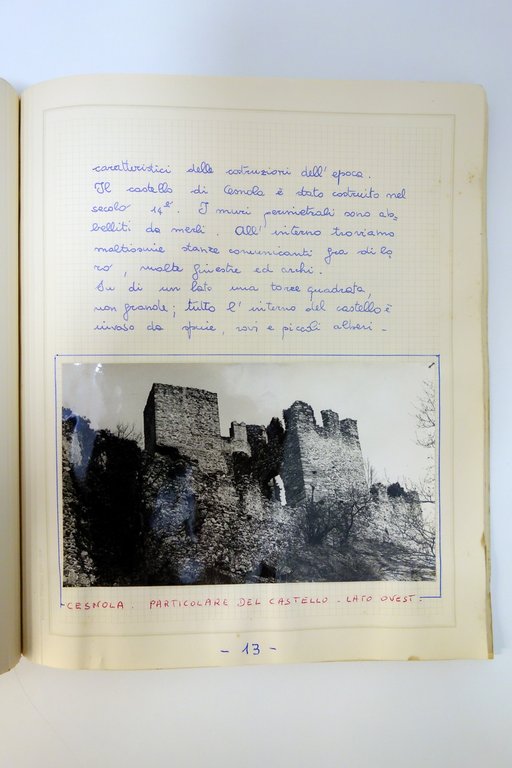 caratteristici delle costruzioni dell'epoca.
Il castello di Cesnola è stato costruito nel
secolo 14º. I muri perimetrali sono ab_
belliti da merli. All'interno troviamo
moltissime stanze comunicanti fra di lo
ro, molte finestre ed archi.
Su di un lato una torre quadrata,
non grande; tutto l'interno del castello è
invaso da spine, rovi e piccoli alberi -
CESNOLA. PARTICOLARE DEL CASTELLO - LATO OVEST.
- 13 -